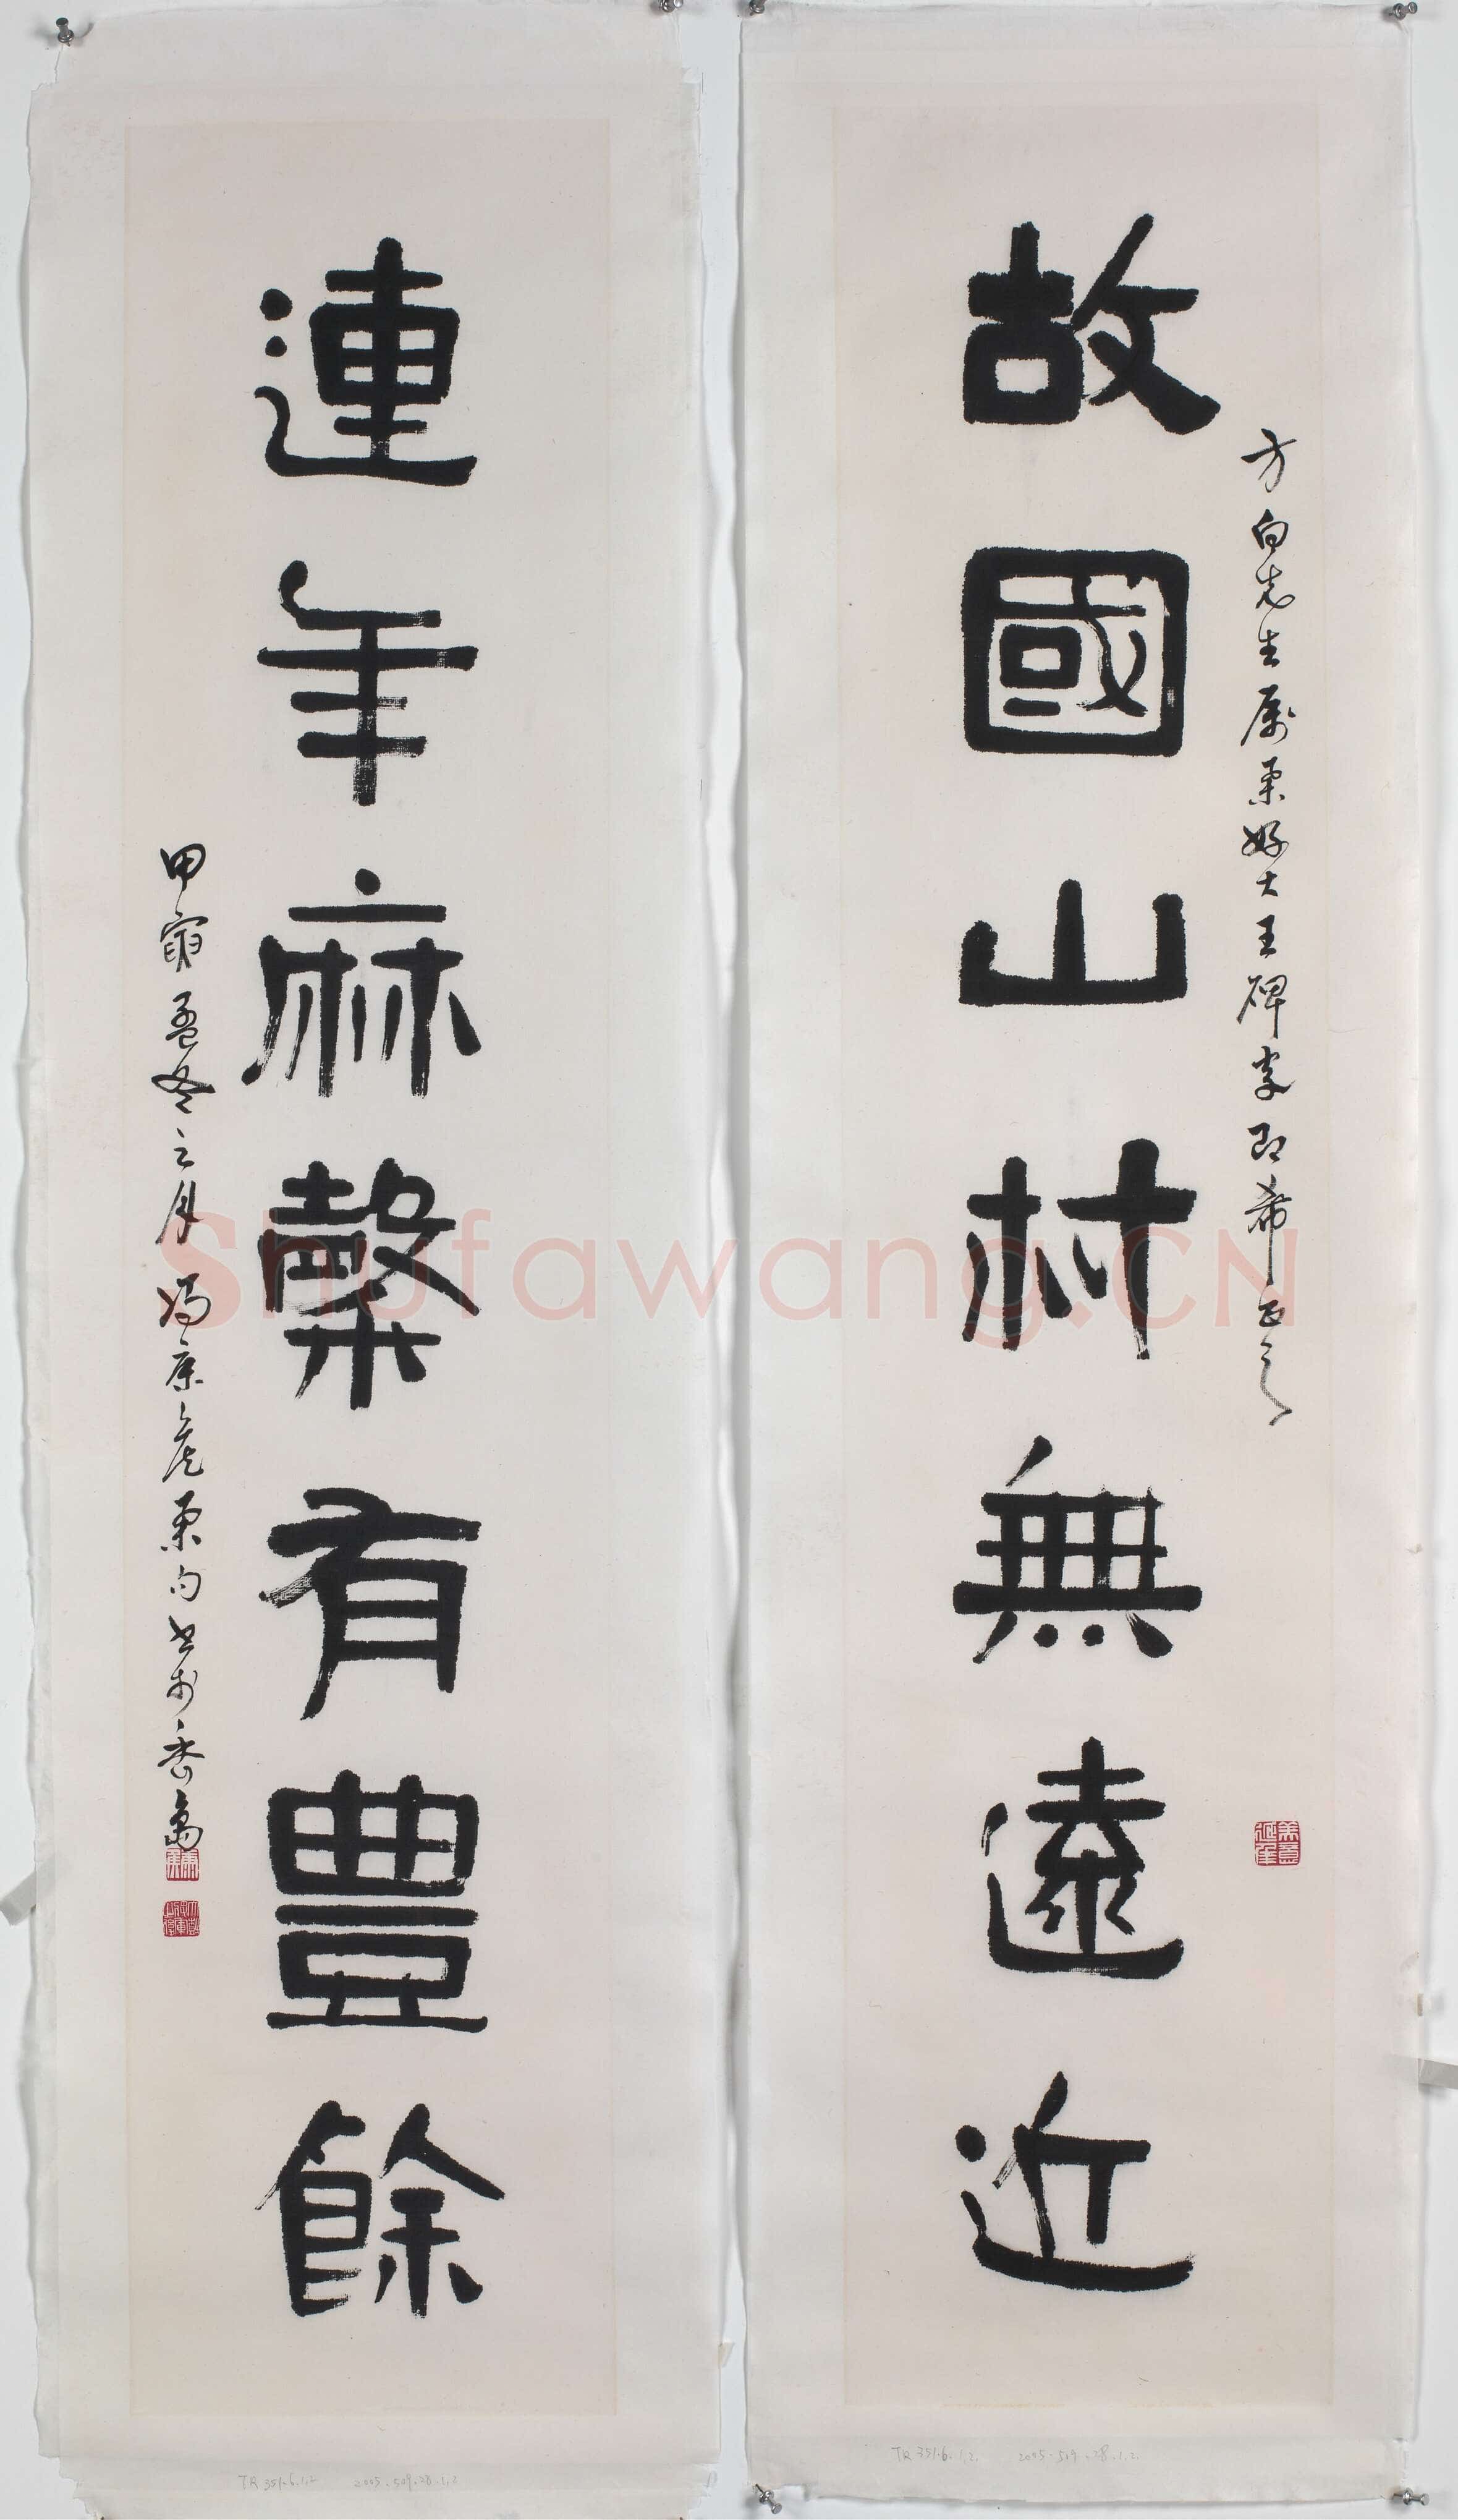 故國山村無遠近
方白先生屬集好大王碑字即希正之
美意延年
連年麻穀有豊餘
甲寅孟冬之月馮康矦集句書於香島
Shufawang.CN
TR 351.6.1.2. 2005.509.28.1.2.
TR 351.6.1.2 2005.509.28.1.2